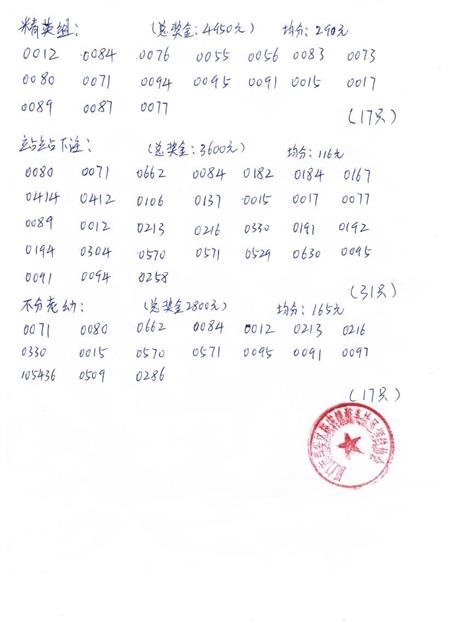 精英组： （总奖金：4950元） 均分：290元
0012 0084 0076 0055 0056 0083 0073
0080 0071 0094 0095 0091 0015 0017
0089 0087 0077
（17只）
站站下注： （总奖金：3600元） 均分：116元
0080 0071 0662 0084 0182 0184 0167
0414 0412 0106 0137 0015 0017 0077
0089 0012 0213 0216 0330 0191 0192
0194 0304 0570 0571 0529 0630 0095
0091 0094 0258
（31只）
不分老幼： （总奖金2800元） 均分：165元
0071 0080 0662 0084 0012 0213 0216
0330 0015 0570 0571 0095 0091 0097
105436 0509 0286
（17只）